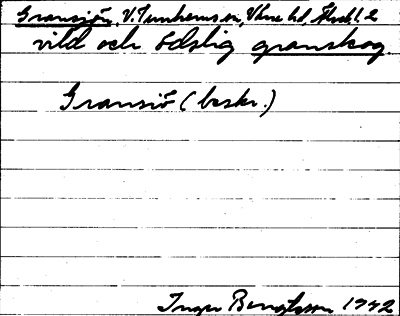 Gransjön, V. Tunhems sn, Väne hd, Skbl. 2
vild och ödslig granskog.
Gransjö (beskr.)
Inger Bengtsson 1942